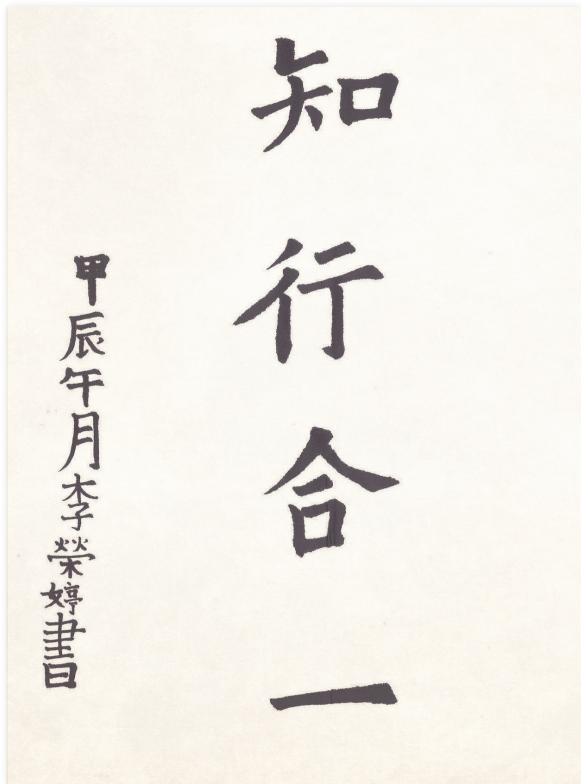 知行合一
甲辰午月李榮婷書